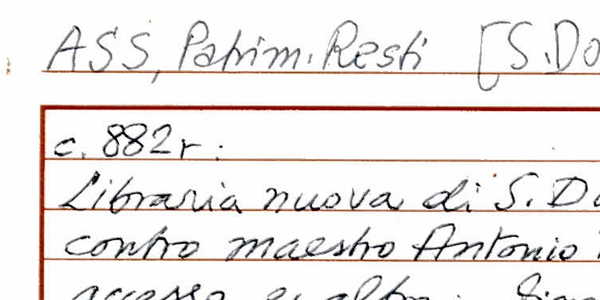 ASS, Patrim. Resti [S. Do
c. 882r:
Libraria nuova di S. Do
contro maestro Antonio
accesso e altro: